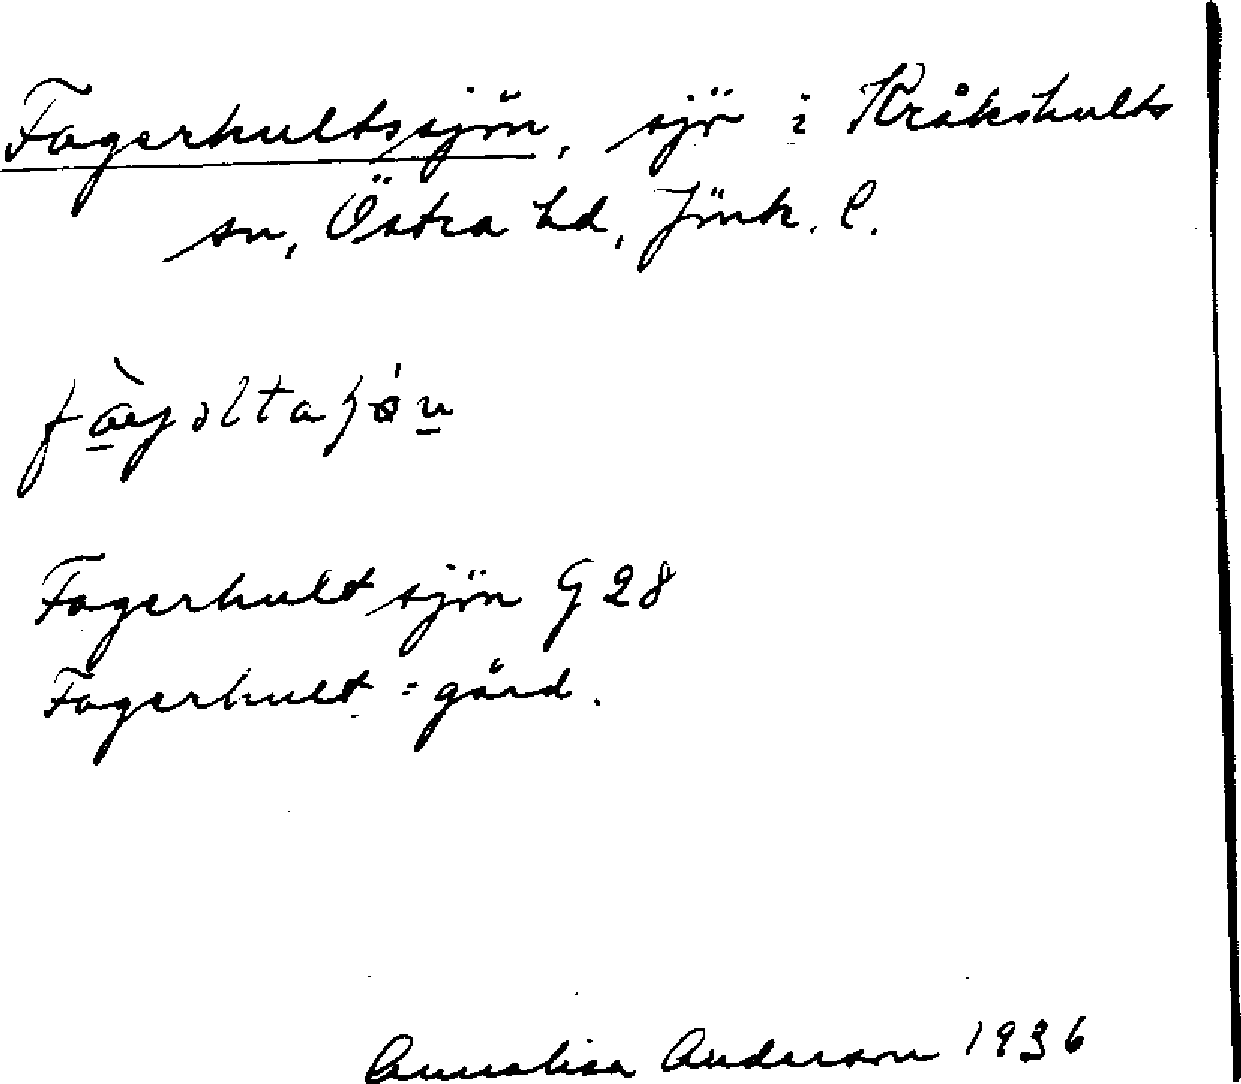 Fagerhultssjön, sjö i Kråkshults
sn, Östra hd, Jönk. l.
Fagerhult sjön G 28
Fagerhult = gård.
Annalisa Anderson 1936